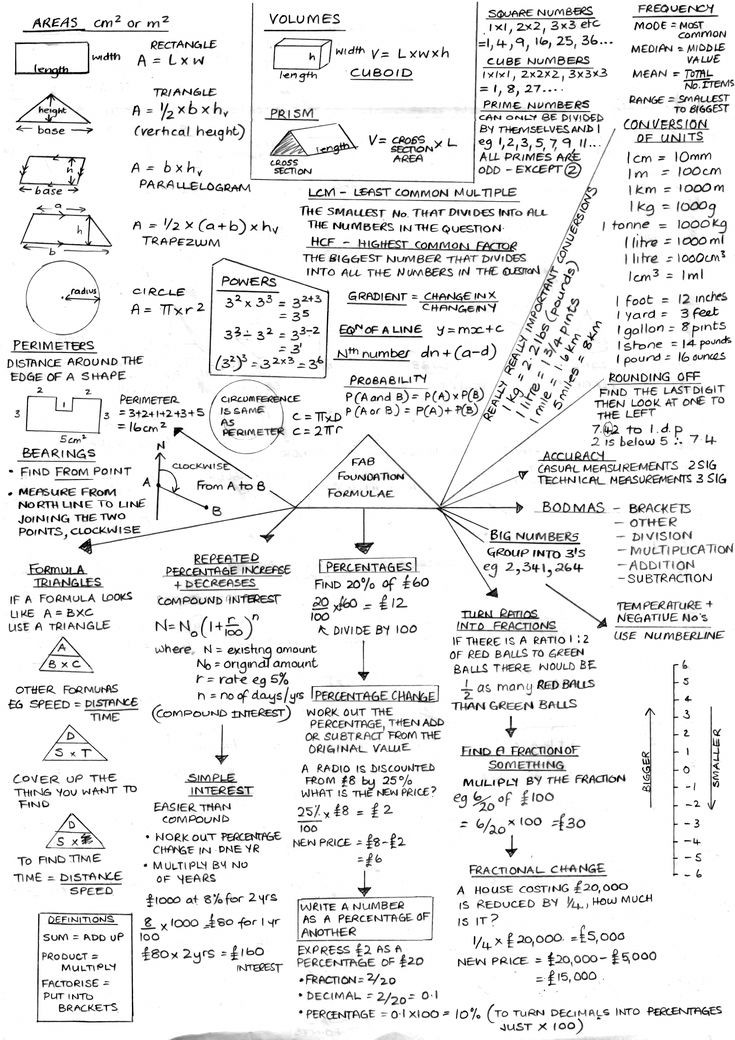 AREAS cm² or m²
width
length
RECTANGLE
A = L x w
height
base
TRIANGLE
A = 1/2 x b x hᵥ
(vertical height)
h
base
A = b x hᵥ
PARALLELOGRAM
a
h
b
A = 1/2 x (a+b) x hᵥ
TRAPEZIUM
radius
CIRCLE
A = π x r²
VOLUMES
h
width
length
V = L x w x h
CUBOID
PRISM
length
CROSS
SECTION
V = CROSS SECTION AREA x L
SQUARE NUMBERS
1x1, 2x2, 3x3 etc
= 1, 4, 9, 16, 25, 36...
CUBE NUMBERS
1x1x1, 2x2x2, 3x3x3
= 1, 8, 27....
PRIME NUMBERS
CAN ONLY BE DIVIDED
BY THEMSELVES AND 1
eg 1, 2, 3, 5, 7, 9, 11...
ALL PRIMES ARE
ODD - EXCEPT 2
FREQUENCY
MODE = MOST
COMMON
MEDIAN = MIDDLE
VALUE
MEAN = TOTAL
No. ITEMS
RANGE = SMALLEST
TO BIGGEST
CONVERSION
OF UNITS
1cm = 10mm
1m = 100cm
1km = 1000m
1kg = 1000g
1 tonne = 1000kg
1 litre = 1000ml
1 litre = 1000cm³
1cm³ = 1ml
1 foot = 12 inches
1 yard = 3 feet
1 gallon = 8 pints
1 stone = 14 pounds
1 pound = 16 ounces
LCM - LEAST COMMON MULTIPLE
THE SMALLEST No. THAT DIVIDES INTO ALL
THE NUMBERS IN THE QUESTION
HCF - HIGHEST COMMON FACTOR
THE BIGGEST NUMBER THAT DIVIDES
INTO ALL THE NUMBERS IN THE QUESTION
REALLY REALLY IMPORTANT CONVERSIONS
1 kg = 2.2 lbs (pounds)
1 litre = 1 3/4 pints
1 mile = 1.6 km
5 miles = 8 km
POWERS
3² x 3³ = 3²⁺³
= 3⁵
3³ ÷ 3² = 3³⁻²
= 3¹
(3²)³ = 3²ˣ³ = 3⁶
GRADIENT = CHANGE IN X
CHANGE IN Y
EQⁿ OF A LINE y = mx + c
Nᵗʰ number dn + (a-d)
PROBABILITY
P(A and B) = P(A) x P(B)
P(A or B) = P(A) + P(B)
PERIMETERS
DISTANCE AROUND THE
EDGE OF A SHAPE
2 2
3 1 3
5cm²
PERIMETER
= 3+2+1+2+3+5
= 16cm²
CIRCUMFERENCE
IS SAME
AS
PERIMETER
C = π x D
C = 2πr
ROUNDING OFF
FIND THE LAST DIGIT
THEN LOOK AT ONE TO
THE LEFT
7.42 to 1.d.p
2 is below 5 ∴ 7.4
ACCURACY
CASUAL MEASUREMENTS 2 SIG
TECHNICAL MEASUREMENTS 3 SIG
BEARINGS
• FIND FROM POINT
• MEASURE FROM
NORTH LINE TO LINE
JOINING THE TWO
POINTS, CLOCKWISE
N
A
B
CLOCKWISE
From A to B
FAB
FOUNDATION
FORMULAE
BODMAS - BRACKETS
- OTHER
- DIVISION
- MULTIPLICATION
- ADDITION
- SUBTRACTION
BIG NUMBERS
GROUP INTO 3'S
eg 2,341,264
FORMULA
TRIANGLES
IF A FORMULA LOOKS
LIKE A = BXC
USE A TRIANGLE
A
B x C
OTHER FORMULAS
EG SPEED = DISTANCE
TIME
D
S x T
COVER UP THE
THING YOU WANT TO
FIND
D
S x
TO FIND TIME
TIME = DISTANCE
SPEED
DEFINITIONS
SUM = ADD UP
PRODUCT =
MULTIPLY
FACTORISE =
PUT INTO
BRACKETS
REPEATED
PERCENTAGE INCREASE
+ DECREASES
COMPOUND INTEREST
N = N₀(1 + r/100)ⁿ
where, N = existing amount
N₀ = original amount
r = rate eg 5%
n = no of days/yrs
(COMPOUND INTEREST)
SIMPLE
INTEREST
EASIER THAN
COMPOUND
• WORK OUT PERCENTAGE
CHANGE IN ONE YR
• MULTIPLY BY NO
OF YEARS
£1000 at 8% for 2 yrs
8/100 x 1000 = £80 for 1 yr
£80 x 2 yrs = £160
INTEREST
PERCENTAGES
FIND 20% of £60
20/100 x £60 = £12
DIVIDE BY 100
PERCENTAGE CHANGE
WORK OUT THE
PERCENTAGE, THEN ADD
OR SUBTRACT FROM THE
ORIGINAL VALUE
A RADIO IS DISCOUNTED
FROM £8 by 25%
WHAT IS THE NEW PRICE?
25%/100 x £8 = £2
NEW PRICE = £8-£2
= £6
WRITE A NUMBER
AS A PERCENTAGE OF
ANOTHER
EXPRESS £2 AS A
PERCENTAGE OF £20
• FRACTION = 2/20
• DECIMAL = 2/20 = 0.1
• PERCENTAGE = 0.1 x 100 = 10% (TO TURN DECIMALS INTO PERCENTAGES
JUST x 100)
TURN RATIOS
INTO FRACTIONS
IF THERE IS A RATIO 1:2
OF RED BALLS TO GREEN
BALLS THERE WOULD BE
1/2 as many RED BALLS
THAN GREEN BALLS
FIND A FRACTION OF
SOMETHING
MULIPLY BY THE FRACTION
eg 6/20 of £100
= 6/20 x 100 = £30
FRACTIONAL CHANGE
A HOUSE COSTING £20,000
IS REDUCED BY 1/4, HOW MUCH
IS IT?
1/4 x £20,000 = £5,000
NEW PRICE = £20,000 - £5,000
= £15,000
TEMPERATURE +
NEGATIVE No's
USE NUMBERLINE
BIGGER
SMALLER
6
5
4
3
2
1
0
-1
-2
-3
-4
-5
-6